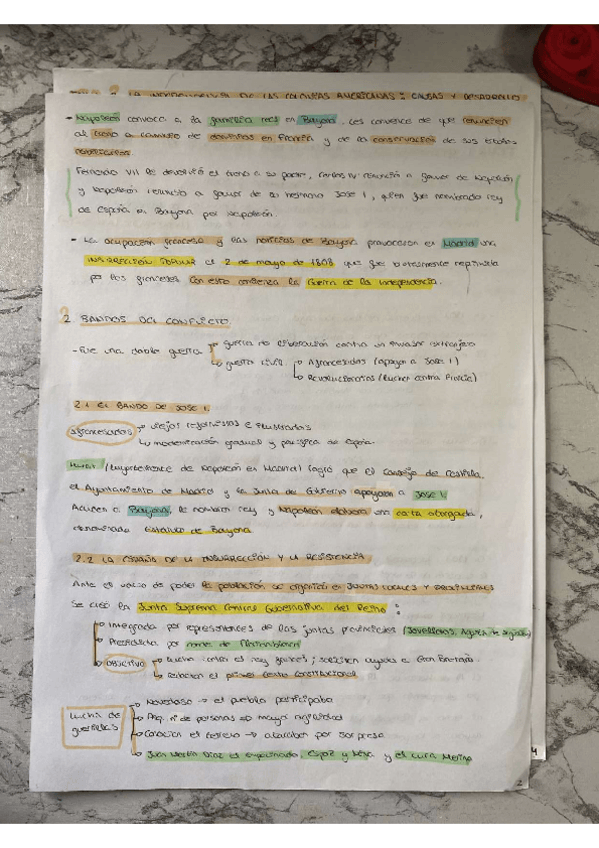 LA INDEPENDENCIA DE LAS COLONIAS AMERICANAS: CAUSAS Y DESARROLLO
- Napoleón convoca a la familia real en Bayona. Les convence de que renuncien
al trono a cambio de destinos en Francia y de la conservación de sus títulos
Fernando VII le devolvió el trono a su padre, Carlos IV renunció a favor de Napoleón
y Napoleón renunció a favor de su hermano José I, quien fue nombrado rey
de España en Bayona por Napoleón.
- La ocupación francesa y las noticias de Bayona provocaron en Madrid una
INSURRECCIÓN POPULAR el 2 de mayo de 1808 que fue duramente reprimida
por los franceses. Con esto comienza la Guerra de la Independencia.
2 BANDOS DEL CONFLICTO
- Fue una doble guerra → guerra de liberación contra un invasor extranjero
↳ guerra civil → Afrancesados (apoyan a José I)
↳ Revolucionarios (luchan contra Francia)
2.1 EL BANDO DE JOSÉ I.
Afrancesados → viejos reformistas e ilustrados
↳ modernización gradual y pacífica de España.
Murat (lugarteniente de Napoleón en Madrid) logró que el Consejo de Castilla,
el Ayuntamiento de Madrid y la Junta de Gobierno apoyaran a José I.
Acuden a Bayona, le nombran rey y Napoleón elabora una carta otorgada,
denominada Estatuto de Bayona
2.2 LA ESPAÑA DE LA INSURRECCIÓN Y LA RESISTENCIA
Ante el vacío de poder la población se organizó en JUNTAS LOCALES Y PROVINCIALES
Se creó la Junta Suprema Central Gubernativa del Reino:
→ Integrada por representantes de las juntas provinciales (Jovellanos,
→ Presidida por conde de Floridablanca
→ Objetivo → Luchar contra el rey francés; solicitan ayuda a Gran Bretaña.
↳ Redactar el primer texto constitucional
Lucha de
guerrillas
→ Novedoso → el pueblo participaba
→ Peq. nº de personas → mayor agilidad
→ Conocían el terreno → atacaban por sorpresa
↳ Juan Martín Díaz el empecinado, Espoz y Mina y el cura Merino
2
4